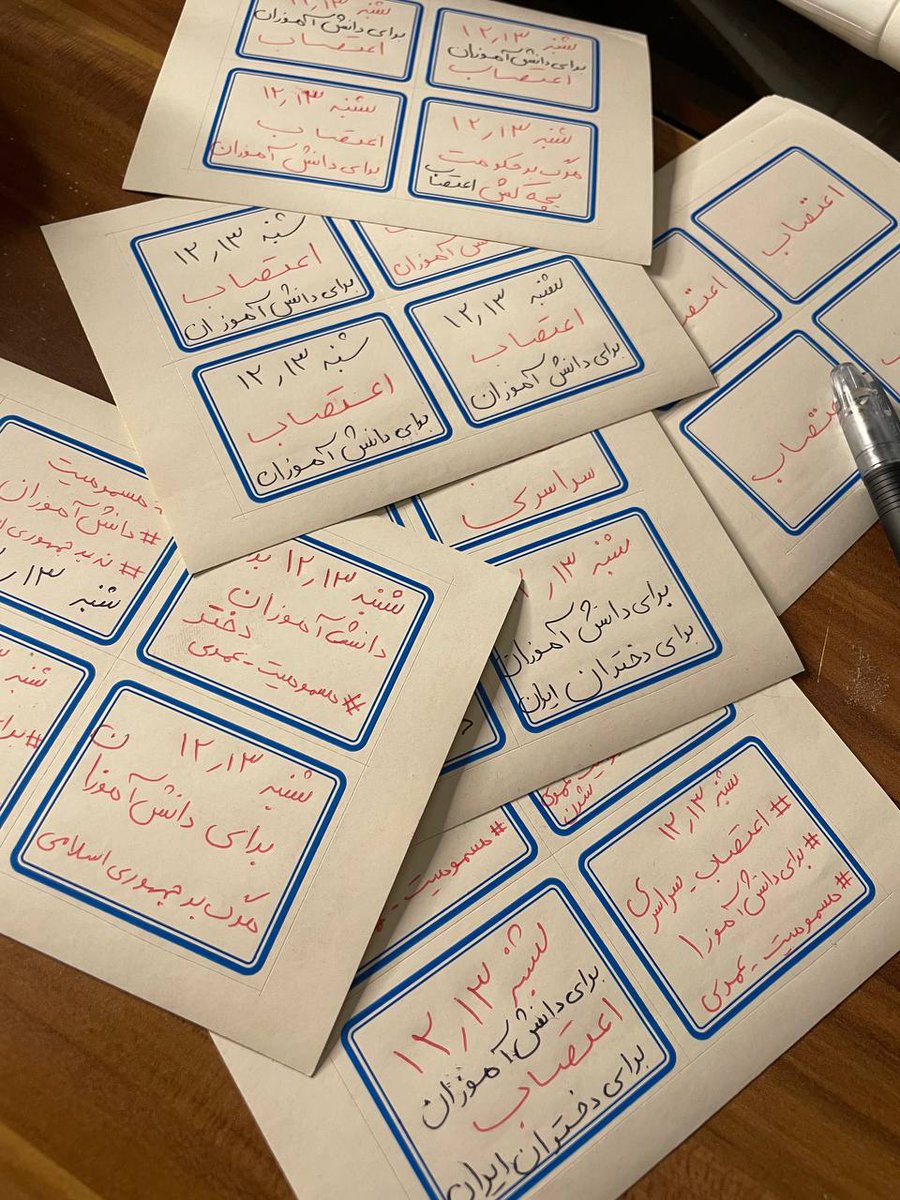 شنبه ۱۲٫۱۳
برای دانش آموزان
اعتصاب
شنبه ۱۲٫۱۳
برای دانش آموزان
اعتصاب
شنبه ۱۲٫۱۳
مرگ بر حکومت
بچه کش اعتصاب
شنبه ۱۲٫۱۳
اعتصاب
برای دانش آموزان
اعتصاب
اعتصاب
اعتصاب
شنبه ۱۲٫۱۳
اعتصاب
برای دانش آموزان
دانش آموزان
شنبه ۱۲٫۱۳
اعتصاب
برای دانش آموزان
شنبه ۱۲٫۱۳
اعتصاب
برای دانش آموزان
سراسری
شنبه ۱۳
برای دانش آموزان
برای دختران ایران
مسمومیت
#دانش آموزان
شنبه ۱۳
شنبه ۱۲٫۱۳
دانش آموزان
دختر
#مسمومیت_عمدی
شنبه
شنبه ۱۲٫۱۳
برای دانش آموزان
مرگ بر جمهوری اسلامی
#مسمومیت
شنبه ۱۲٫۱۳
#اعتصاب_سراسری
#برای دانش آموزا
#مسمومیت_عمدی
شنبه ۱۲٫۱۳
برای دانش آموزان
اعتصاب
برای دختران ایران